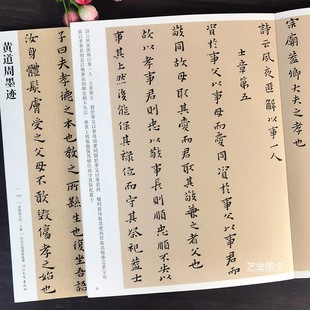 宗廟蓋卿大夫之孝也
詩云夙夜匪解以事一人
士章第五
資於事父以事母而愛同資於事父以事君而
敬同故母取其愛而君取其敬兼之者父也
故以孝事君則忠以敬事長則順忠順不失以
事其上然後能保其祿位而守其祭祀蓋士
子曰夫孝德之本也教之所繇生也復坐吾語
汝身體髮膚受之父母不敢毀傷孝之始也
黄道周墨迹